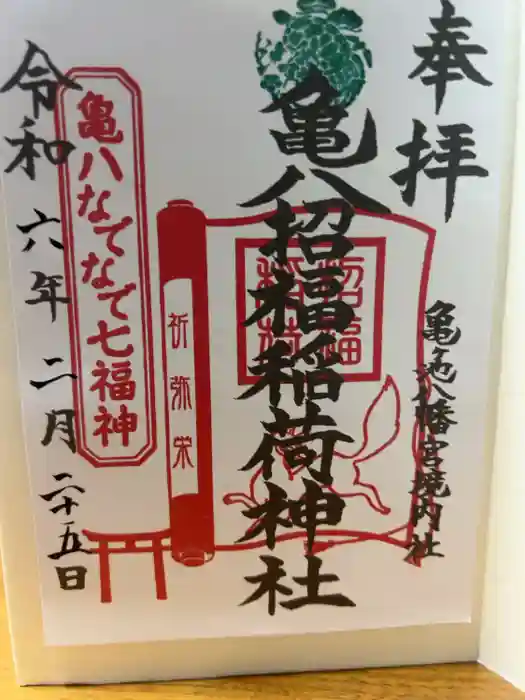 奉拝
亀ヶ池八幡宮境内社
亀八招福稲荷神社
招福稲荷
祈弥栄
亀八なでなで七福神
令和六年二月二十五日